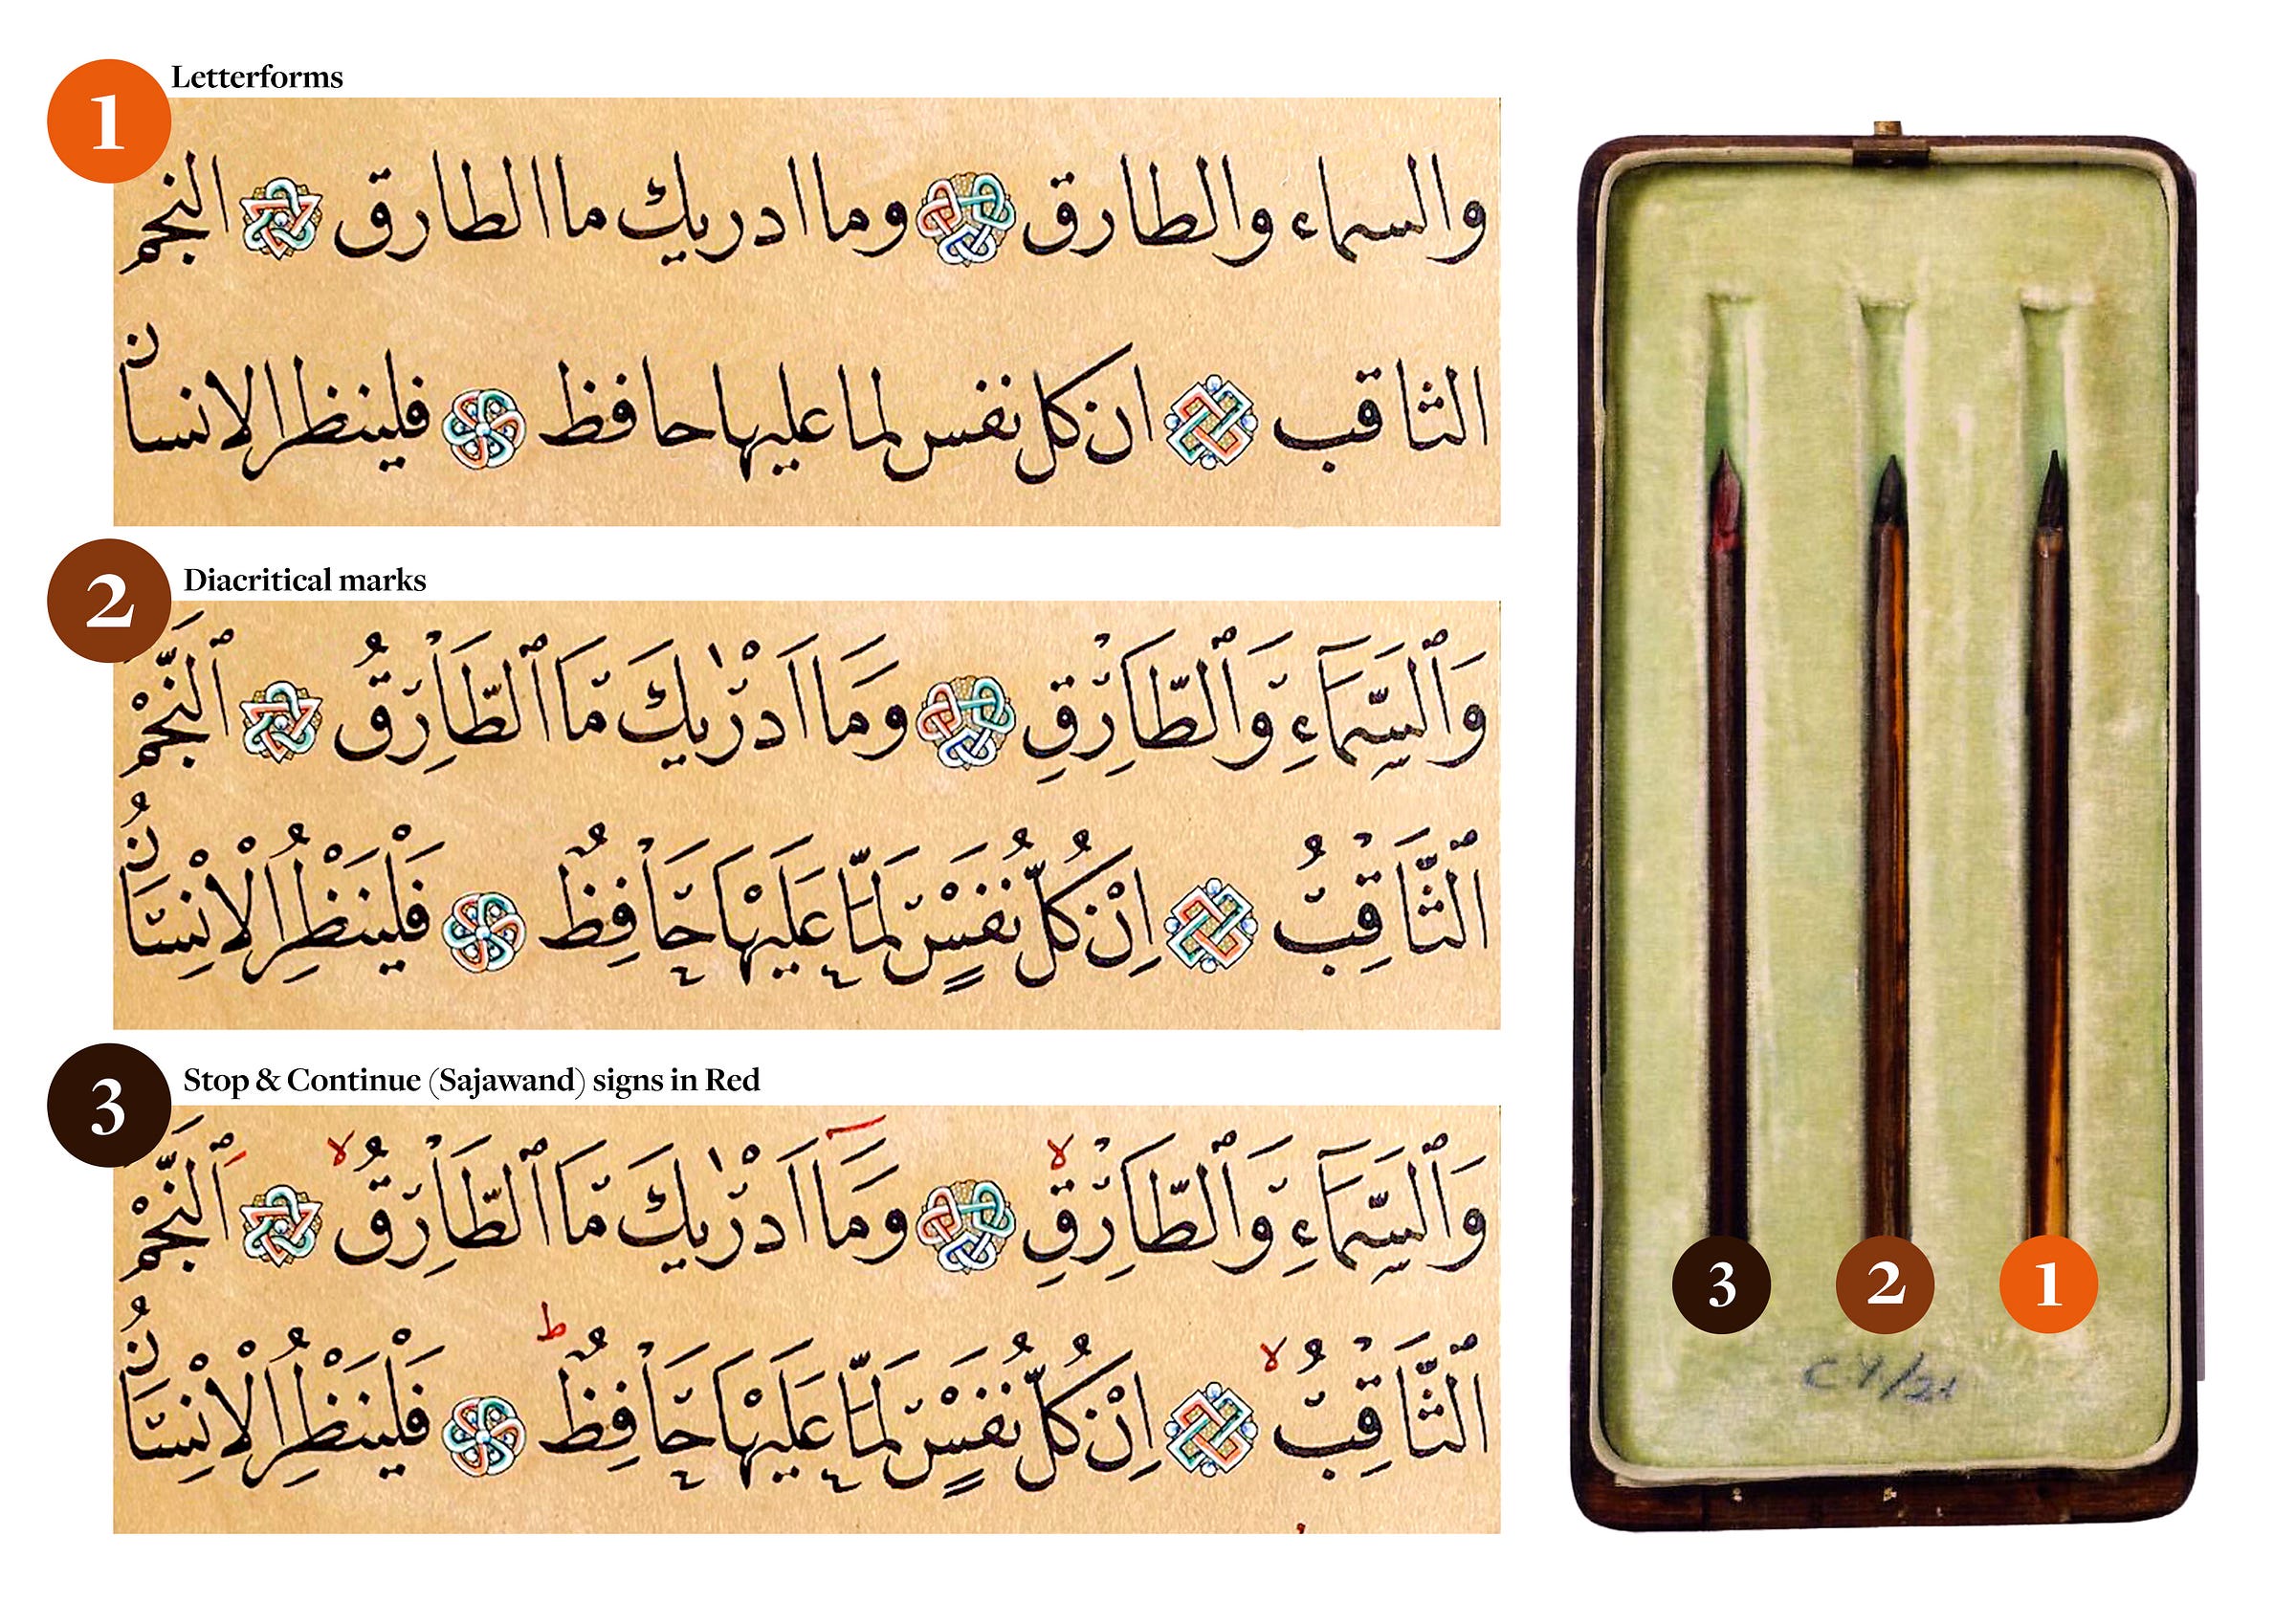 1
Letterforms
والسماء والطارق وما ادريك ما الطارق النجم
الثاقب ان كل نفس لما عليها حافظ فلينظر الانسان
2
Diacritical marks
وَٱلسَّمَٓاءِ وَٱلطَّارِقِ وَمَا اَدْرٰيكَ مَا ٱلطَّارِقُ ٱلنَّجْمُ
ٱلثَّاقِبُ اِنْ كُلُّ نَفْسٍ لَمَّا عَلَيْهَا حَافِظٌ فَلْيَنْظُرِ الْاِنْسَانُ
3
Stop & Continue (Sajawand) signs in Red
وَٱلسَّمَٓاءِ وَٱلطَّارِقِ لا وَمَٓا اَدْرٰيكَ مَا ٱلطَّارِقُ لا اَلنَّجْمُ
ٱلثَّاقِبُ لا اِنْ كُلُّ نَفْسٍ لَمَّا عَلَيْهَا حَافِظٌ ط فَلْيَنْظُرِ الْاِنْسَانُ
3 2 1